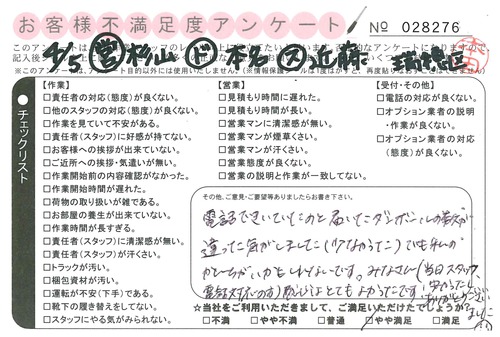 お客様不満足度アンケート
No 028276
4/5 営 杉山 ド 本名 ス 近藤 瑞穂区
チェックリスト
【作業】
□責任者の対応(態度)が良くない。
□他のスタッフの対応(態度)が良くない。
□作業を見ていて不安がある。
□責任者(スタッフ)に好感が持てない。
□お客様への挨拶が出来ていない。
□ご近所への挨拶・気遣いが無い。
□作業開始前の内容確認がなかった。
□作業開始時間が遅れた。
□荷物の取り扱いが雑である。
□お部屋の養生が出来ていない。
□作業時間が長すぎる。
□責任者(スタッフ)に清潔感が無い。
□責任者(スタッフ)が汗くさい。
□トラックが汚い。
□梱包資材が汚い。
□運転が不安(下手)である。
□靴下の履き替えをしてない。
□スタッフにやる気がみられない。
【営業】
□見積もり時間に遅れた。
□見積もり時間が長い。
□営業マンに清潔感が無い。
□営業マンが煙草くさい。
□営業マンが汗くさい。
□営業態度が良くない。
□営業の説明と作業が一致してない。
【受付・その他】
□電話の対応が良くない。
□オプション業者の説明
・作業が良くない。
□オプション業者の対応
(態度)が良くない。
その他、ご意見・ご要望等ありましたらお書き下さい。
電話できいていたのと届いたダンボールの数が
違った気がしました(少なかった)でも私の
かんちがいかもしれないです。みなさん(当日スタッフ、
電話対応の方)とてもよかったです。
ありがとうございました
☆当社をご利用いただきまして、ご満足いただけたでしょうか?
□不満 □やや不満 □普通 □やや満足 □満足